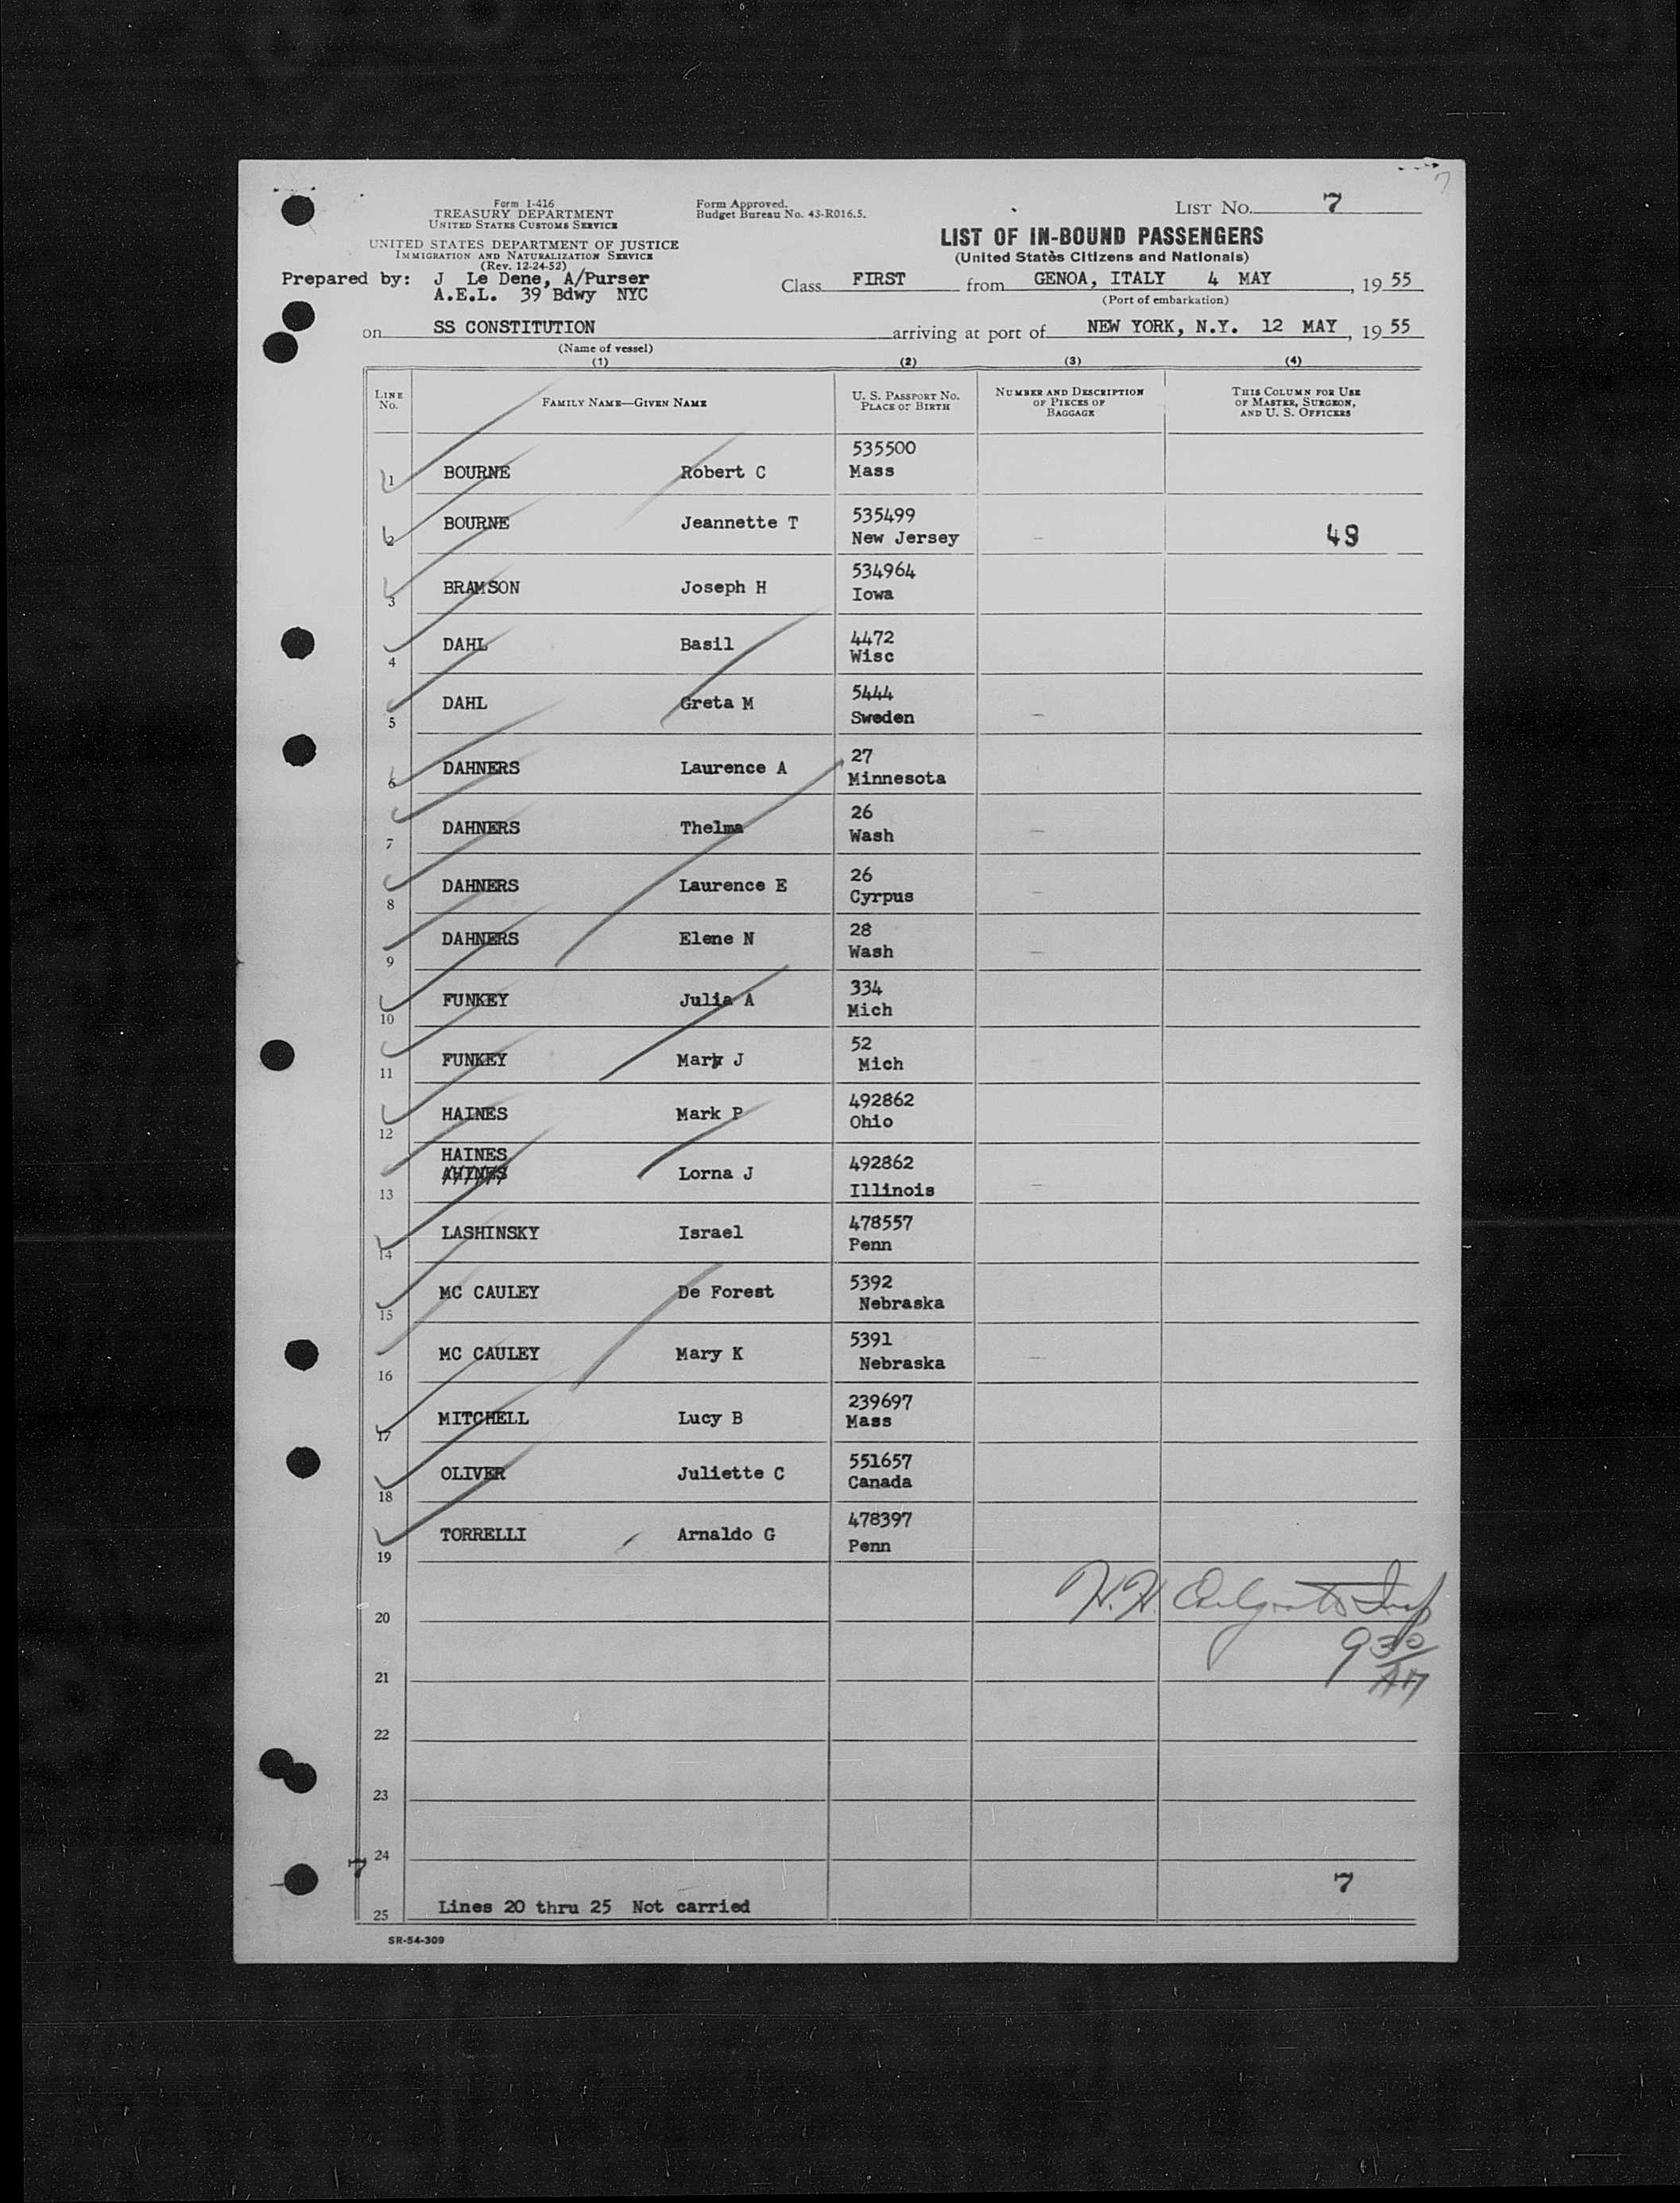 7
Form I-416
TREASURY DEPARTMENT
UNITED STATES CUSTOMS SERVICE
UNITED STATES DEPARTMENT OF JUSTICE
IMMIGRATION AND NATURALIZATION SERVICE
(Rev. 12-24-52)
Form Approved.
Budget Bureau No. 43-R016.5.
LIST NO. 7
LIST OF IN-BOUND PASSENGERS
(United States Citizens and Nationals)
Prepared by: J Le Dene, A/Purser
A.E.L. 39 Bdwy NYC
Class FIRST from GENOA, ITALY 4 MAY, 19 55
(Port of embarkation)
on SS CONSTITUTION arriving at port of NEW YORK, N.Y. 12 MAY, 19 55
(Name of vessel)
(1) (2) (3) (4)
LINE NO. FAMILY NAME—GIVEN NAME U. S. PASSPORT NO. PLACE OF BIRTH NUMBER AND DESCRIPTION OF PIECES OF BAGGAGE THIS COLUMN FOR USE OF MASTER, SURGEON, AND U. S. OFFICERS
1 BOURNE Robert C 535500 Mass
2 BOURNE Jeannette T 535499 New Jersey 49
3 BRAMSON Joseph H 534964 Iowa
4 DAHL Basil 4472 Wisc
5 DAHL Greta M 5444 Sweden
6 DAHNERS Laurence A 27 Minnesota
7 DAHNERS Thelma 26 Wash
8 DAHNERS Laurence E 26 Cyrpus
9 DAHNERS Elene N 28 Wash
10 FUNKEY Julia A 334 Mich
11 FUNKEY Mary J 52 Mich
12 HAINES Mark P 492862 Ohio
HAINES
13 AHINES Lorna J 492862 Illinois
14 LASHINSKY Israel 478557 Penn
15 MC CAULEY De Forest 5392 Nebraska
16 MC CAULEY Mary K 5391 Nebraska
17 MITCHELL Lucy B 239697 Mass
18 OLIVER Juliette C 551657 Canada
19 TORRELLI Arnaldo G 478397 Penn
20 H.H. Insp
21 9 30 AM
22
23
24
7 7
25 Lines 20 thru 25 Not carried
SR-54-309